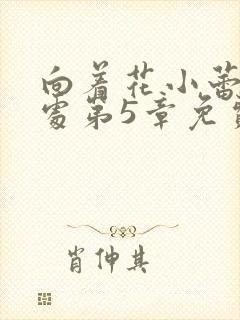 向着花小蕾
处第5章免费
肖伸其